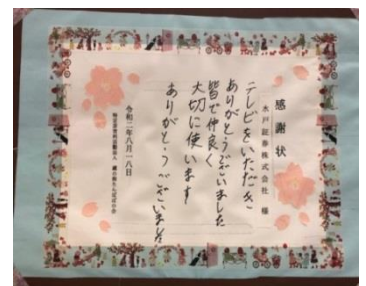 感謝状
水戸証券株式会社 様
テレビをいただき
ありがとうございました
皆で仲良く
大切に使います
ありがとうございます
令和二年八月一八日
特定非営利活動法人